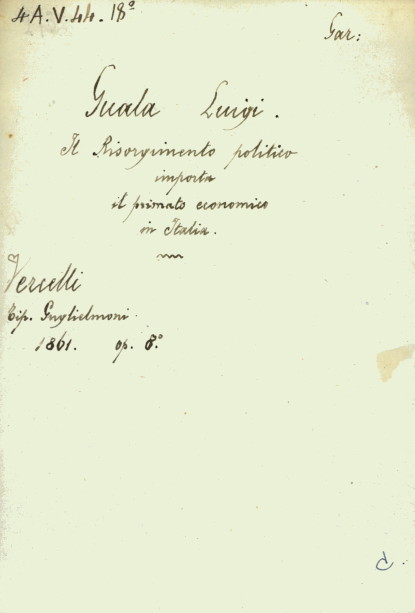 4 A. V. 44. 18°
Gar:
Guala Luigi.
Il Risorgimento politico
importa
il primato economico
in Italia.
Vercelli
Tip. Guglielmoni.
1861. op. 8°